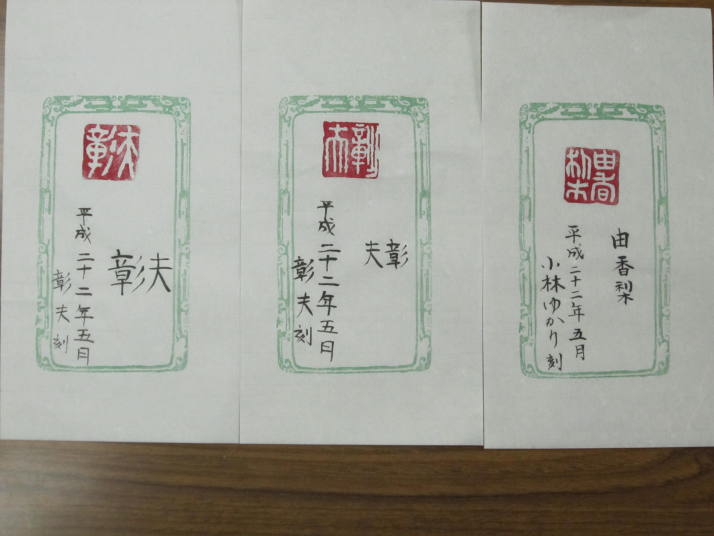 彰夫
彰夫
平成二十二年五月
彰夫刻
彰夫
彰
夫
平成二十二年五月
彰夫刻
由香梨
由香梨
平成二十二年五月
小林ゆかり刻